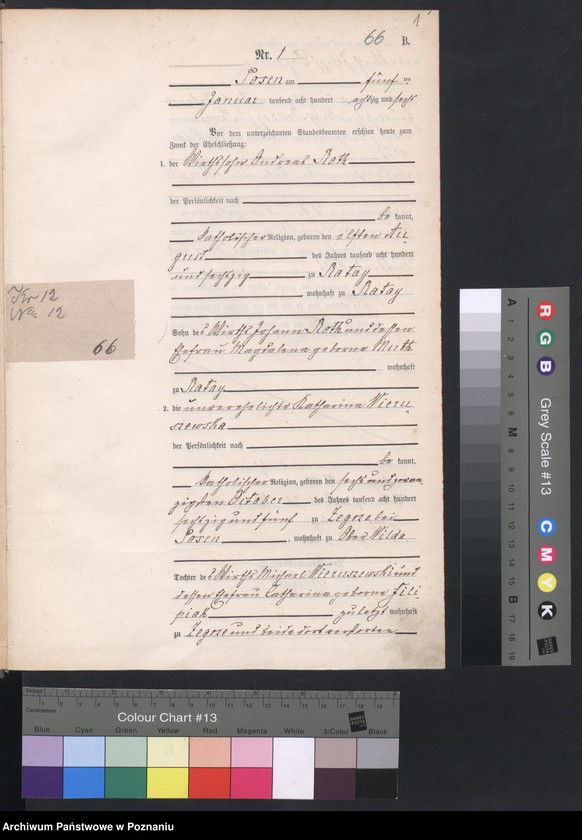 1
66 B.
Nr. 1
Posen am fünften
Januar tausend acht hundert achtzig und sechs
Vor dem unterzeichneten Standesbeamten erschien heute zum
Zweck der Eheschließung:
1. der Wirthssohn Andreas Roth
der Persönlichkeit nach
be kannt,
katholischer Religion, geboren den elften Au-
gust des Jahres tausend acht hundert
und sechszig zu Ratay
, wohnhaft zu Ratay
Sohn des Wirths Johann Roth und dessen
Ehefrau Magdalena geborne Muth
wohnhaft
zu Ratay
2. die unverehelichte Katharina Wieru-
szewska
der Persönlichkeit nach
be kannt,
katholischer Religion, geboren den sechsundzwan-
zigsten Oktober des Jahres tausend acht hundert
sechszig und fünf zu Zegrze bei
Posen, wohnhaft zu Ober Wilda
Tochter des Wirths Michael Wieruszewski und
dessen Ehefrau Catharina geborne Fili-
piak zuletzt wohnhaft
zu Zegrze und beide dort verstorben
12
12
66
Inches
Centimetres
Colour Chart #13
Blue Cyan Green Yellow Red Magenta White 3/Color Black
Grey Scale #13
R G B C M Y K
A 1 2 3 4 5 6 M 8 9 10 11 12 13 14 15 B 17 18 19
Archiwum Państwowe w Poznaniu